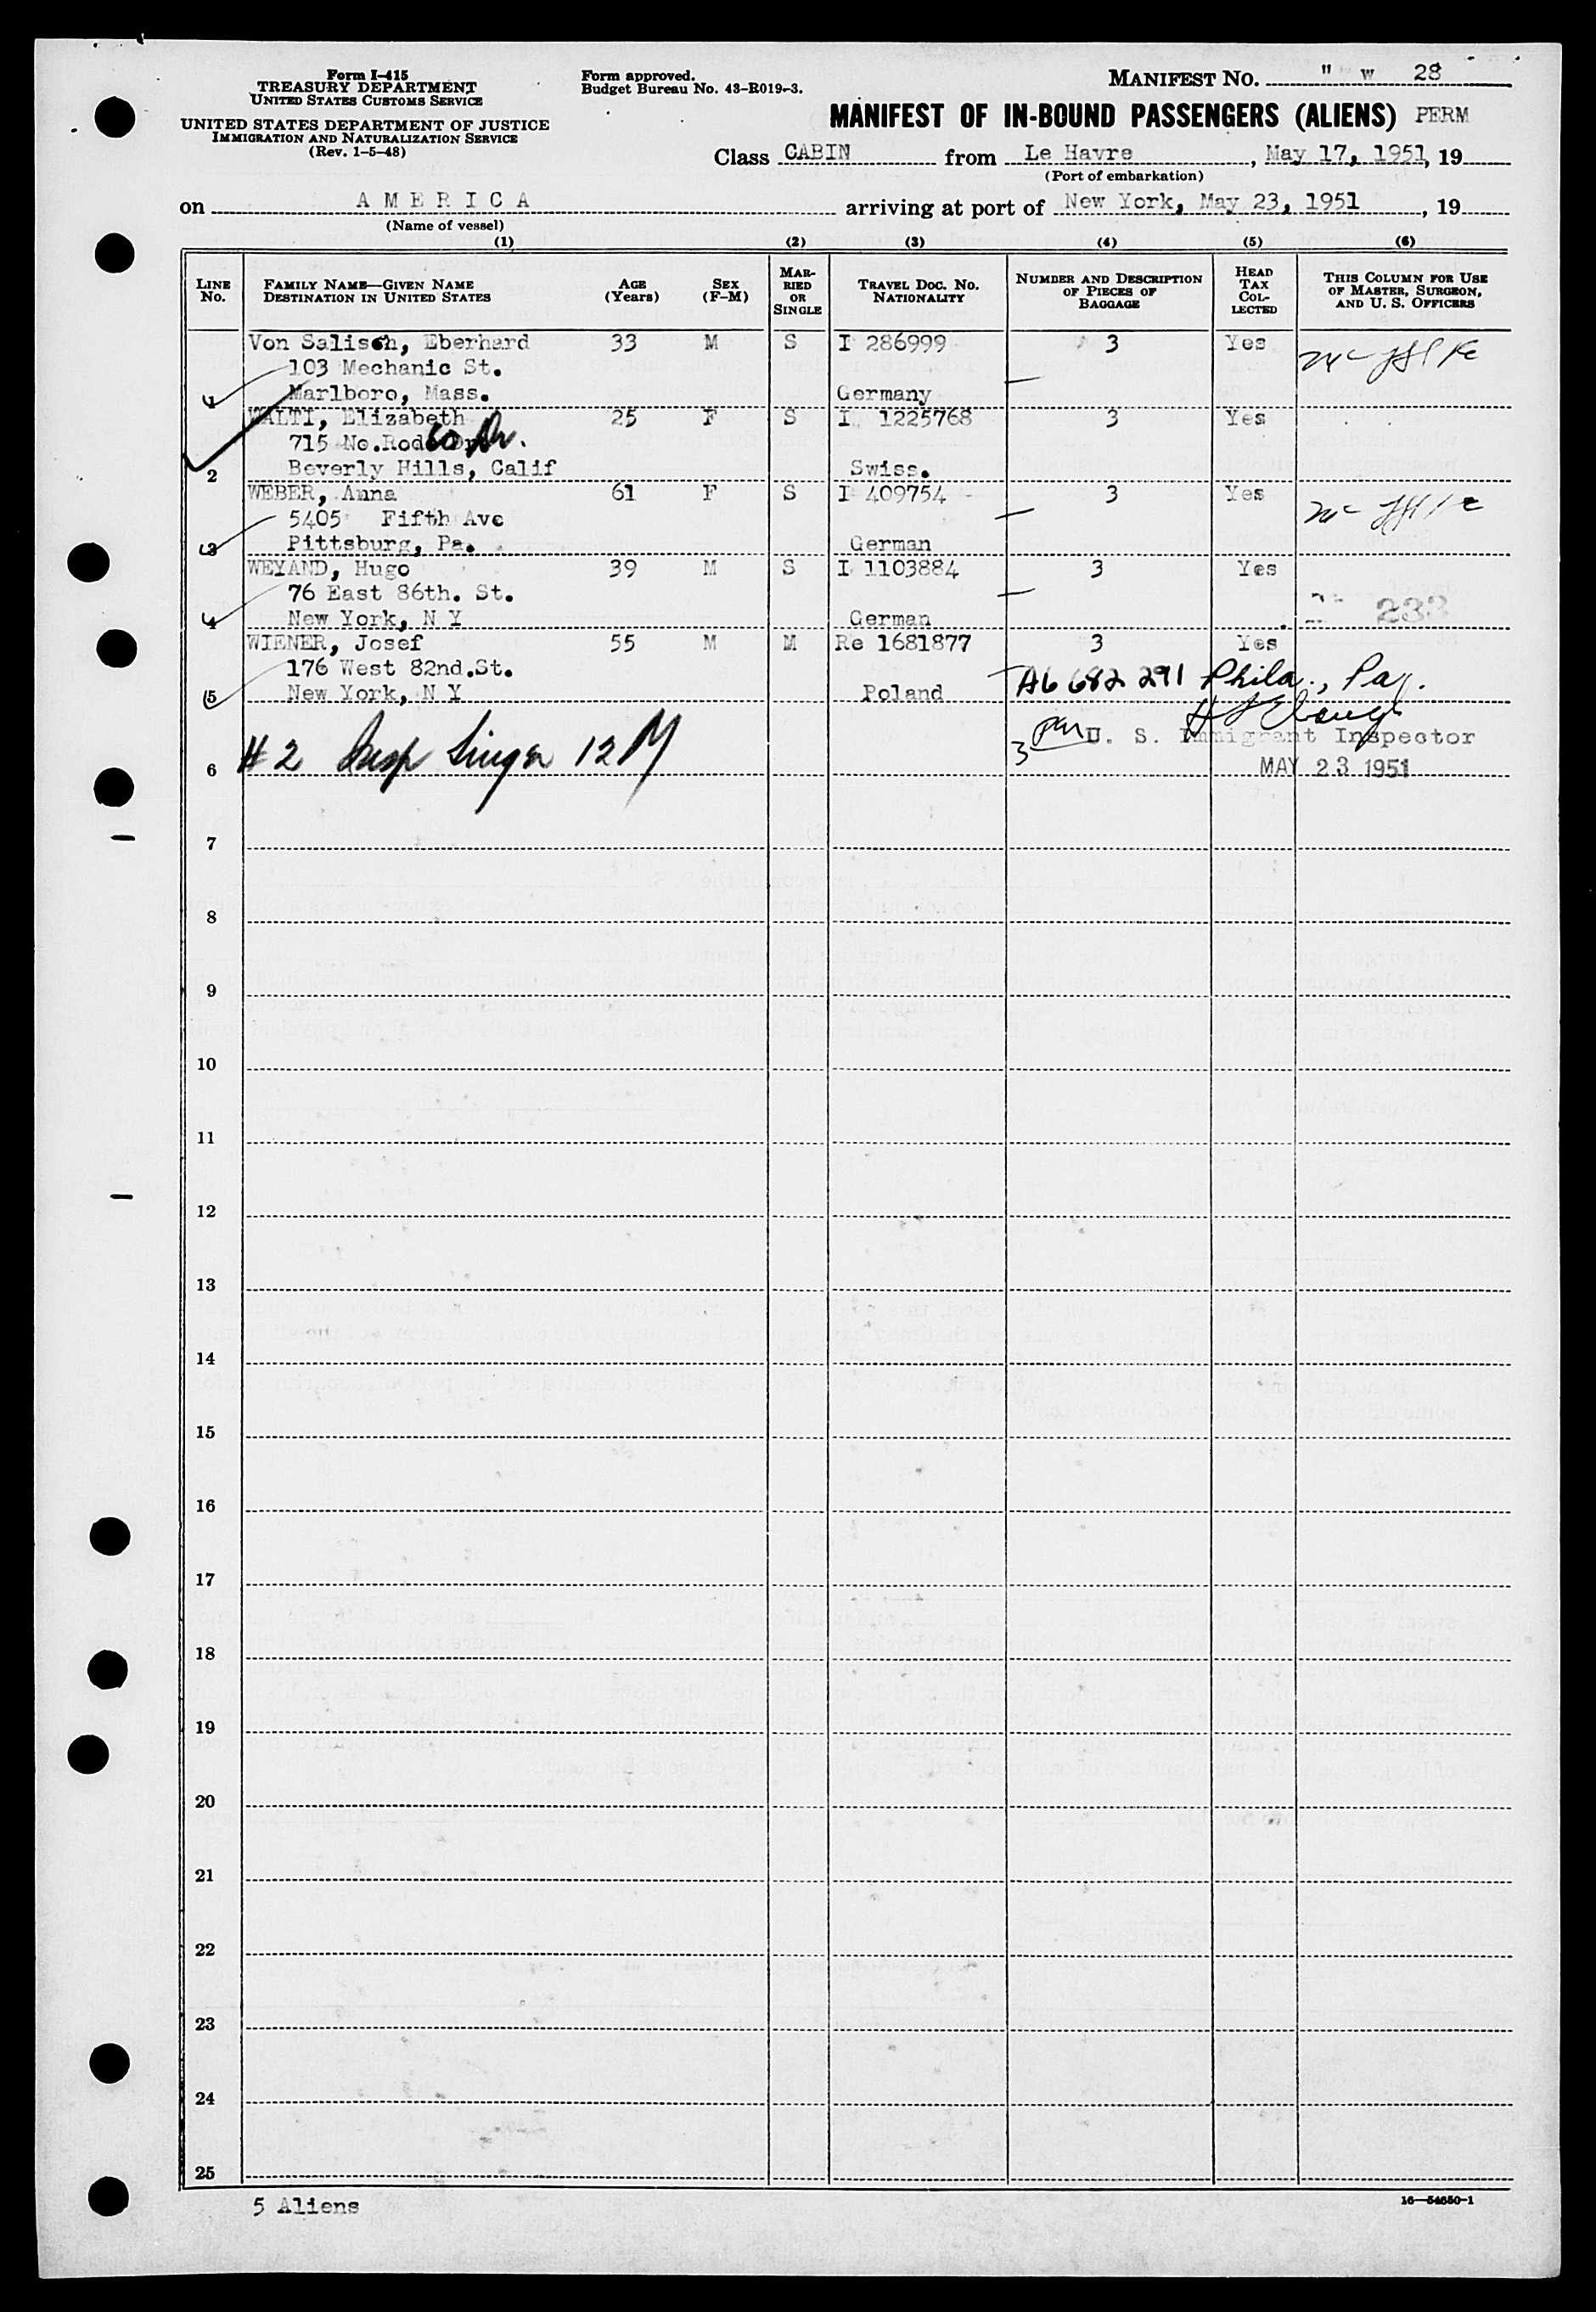 Form I-415
TREASURY DEPARTMENT
UNITED STATES CUSTOMS SERVICE
UNITED STATES DEPARTMENT OF JUSTICE
IMMIGRATION AND NATURALIZATION SERVICE
(Rev. 1-5-48)
Form approved.
Budget Bureau No. 43-R019-3.
MANIFEST NO. " W 28
MANIFEST OF IN-BOUND PASSENGERS (ALIENS) PERM
Class CABIN from Le Havre, May 17, 1951, 19
(Port of embarkation)
on AMERICA arriving at port of New York, May 23, 1951, 19
(Name of vessel)
(1) (2) (3) (4) (5) (6)
LINE NO.
FAMILY NAME—GIVEN NAME
DESTINATION IN UNITED STATES
AGE (Years)
SEX (F-M)
MARRIED OR SINGLE
TRAVEL DOC. NO.
NATIONALITY
NUMBER AND DESCRIPTION OF PIECES OF BAGGAGE
HEAD TAX COLLECTED
THIS COLUMN FOR USE OF MASTER, SURGEON, AND U. S. OFFICERS
Von Salisch, Eberhard 33 M S I 286999 3 Yes
103 Mechanic St.
1 Marlboro, Mass. Germany
WALTI, Elizabeth 25 F S I 1225768 3 Yes
715 No.Rodeo Dr.
2 Beverly Hills, Calif Swiss.
WEBER, Anna 61 F S I 409754 3 Yes
5405 Fifth Ave
3 Pittsburg, Pa. German
WEYAND, Hugo 39 M S I 1103884 3 Yes
76 East 86th. St.
4 New York, N Y German 233
WIENER, Josef 55 M M Re 1681877 3 Yes
176 West 82nd.St.
5 New York, N Y Poland A6 682 291 Phila., Pa.
#2 Insp Singer 12 M
U. S. Immigrant Inspector
6 MAY 23 1951
7
8
9
10
11
12
13
14
15
16
17
18
19
20
21
22
23
24
25
5 Aliens
16—54650-1